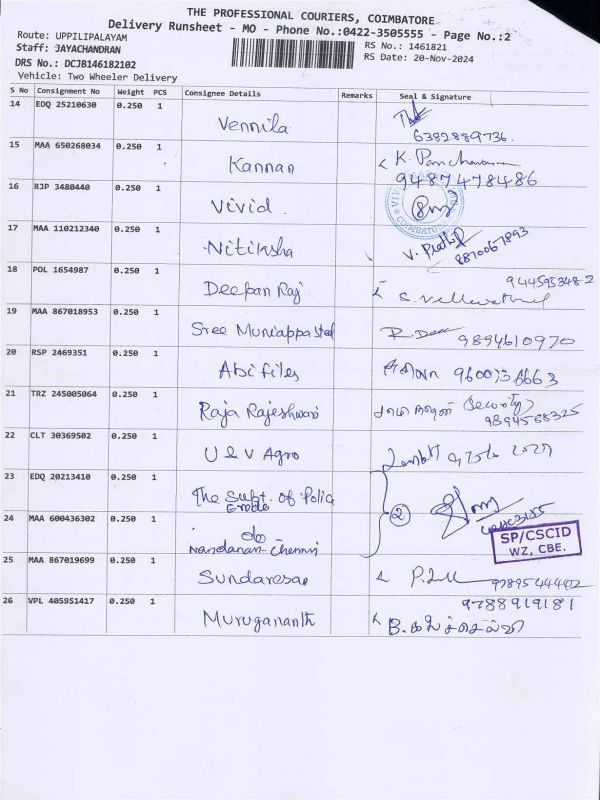 THE PROFESSIONAL COURIERS, COIMBATORE
Delivery Runsheet - MO - Phone No.:0422-3505555 - Page No.:2
Route: UPPILIPALAYAM
RS No.: 1461821
Staff: JAYACHANDRAN
RS Date: 20-Nov-2024
DRS No.: DCJB146182102
Vehicle: Two Wheeler Delivery
S No Consignment No Weight PCS Consignee Details Remarks Seal & Signature
14 EDQ 25210630 0.250 1 Vennila
6382889736
15 MAA 650268034 0.250 1 Kannan K.
9487478486
16 RJP 3480440 0.250 1 Vivid.
COIMBATORE
17 MAA 110212340 0.250 1 Nitiksha V.
8870067893
18 POL 1654987 0.250 1 Deepan Raj
9445953482
19 MAA 867018953 0.250 1 Sree Muniappa R. 9894610970
20 RSP 2469351 0.250 1 Abi files
21 TRZ 245005064 0.250 1 Raja Rajeshwari (Security)
22 CLT 30369502 0.250 1 U & V Agro
23 EDQ 20213410 0.250 1 The Supt. of Police
Erode
2
24 MAA 600436302 0.250 1 do
Nandanam-Chennai
SP/CSCID
WZ, CBE.
25 MAA 867019699 0.250 1 Sundaresan P.
26 VPL 405951417 0.250 1 Murugananth 9788919181